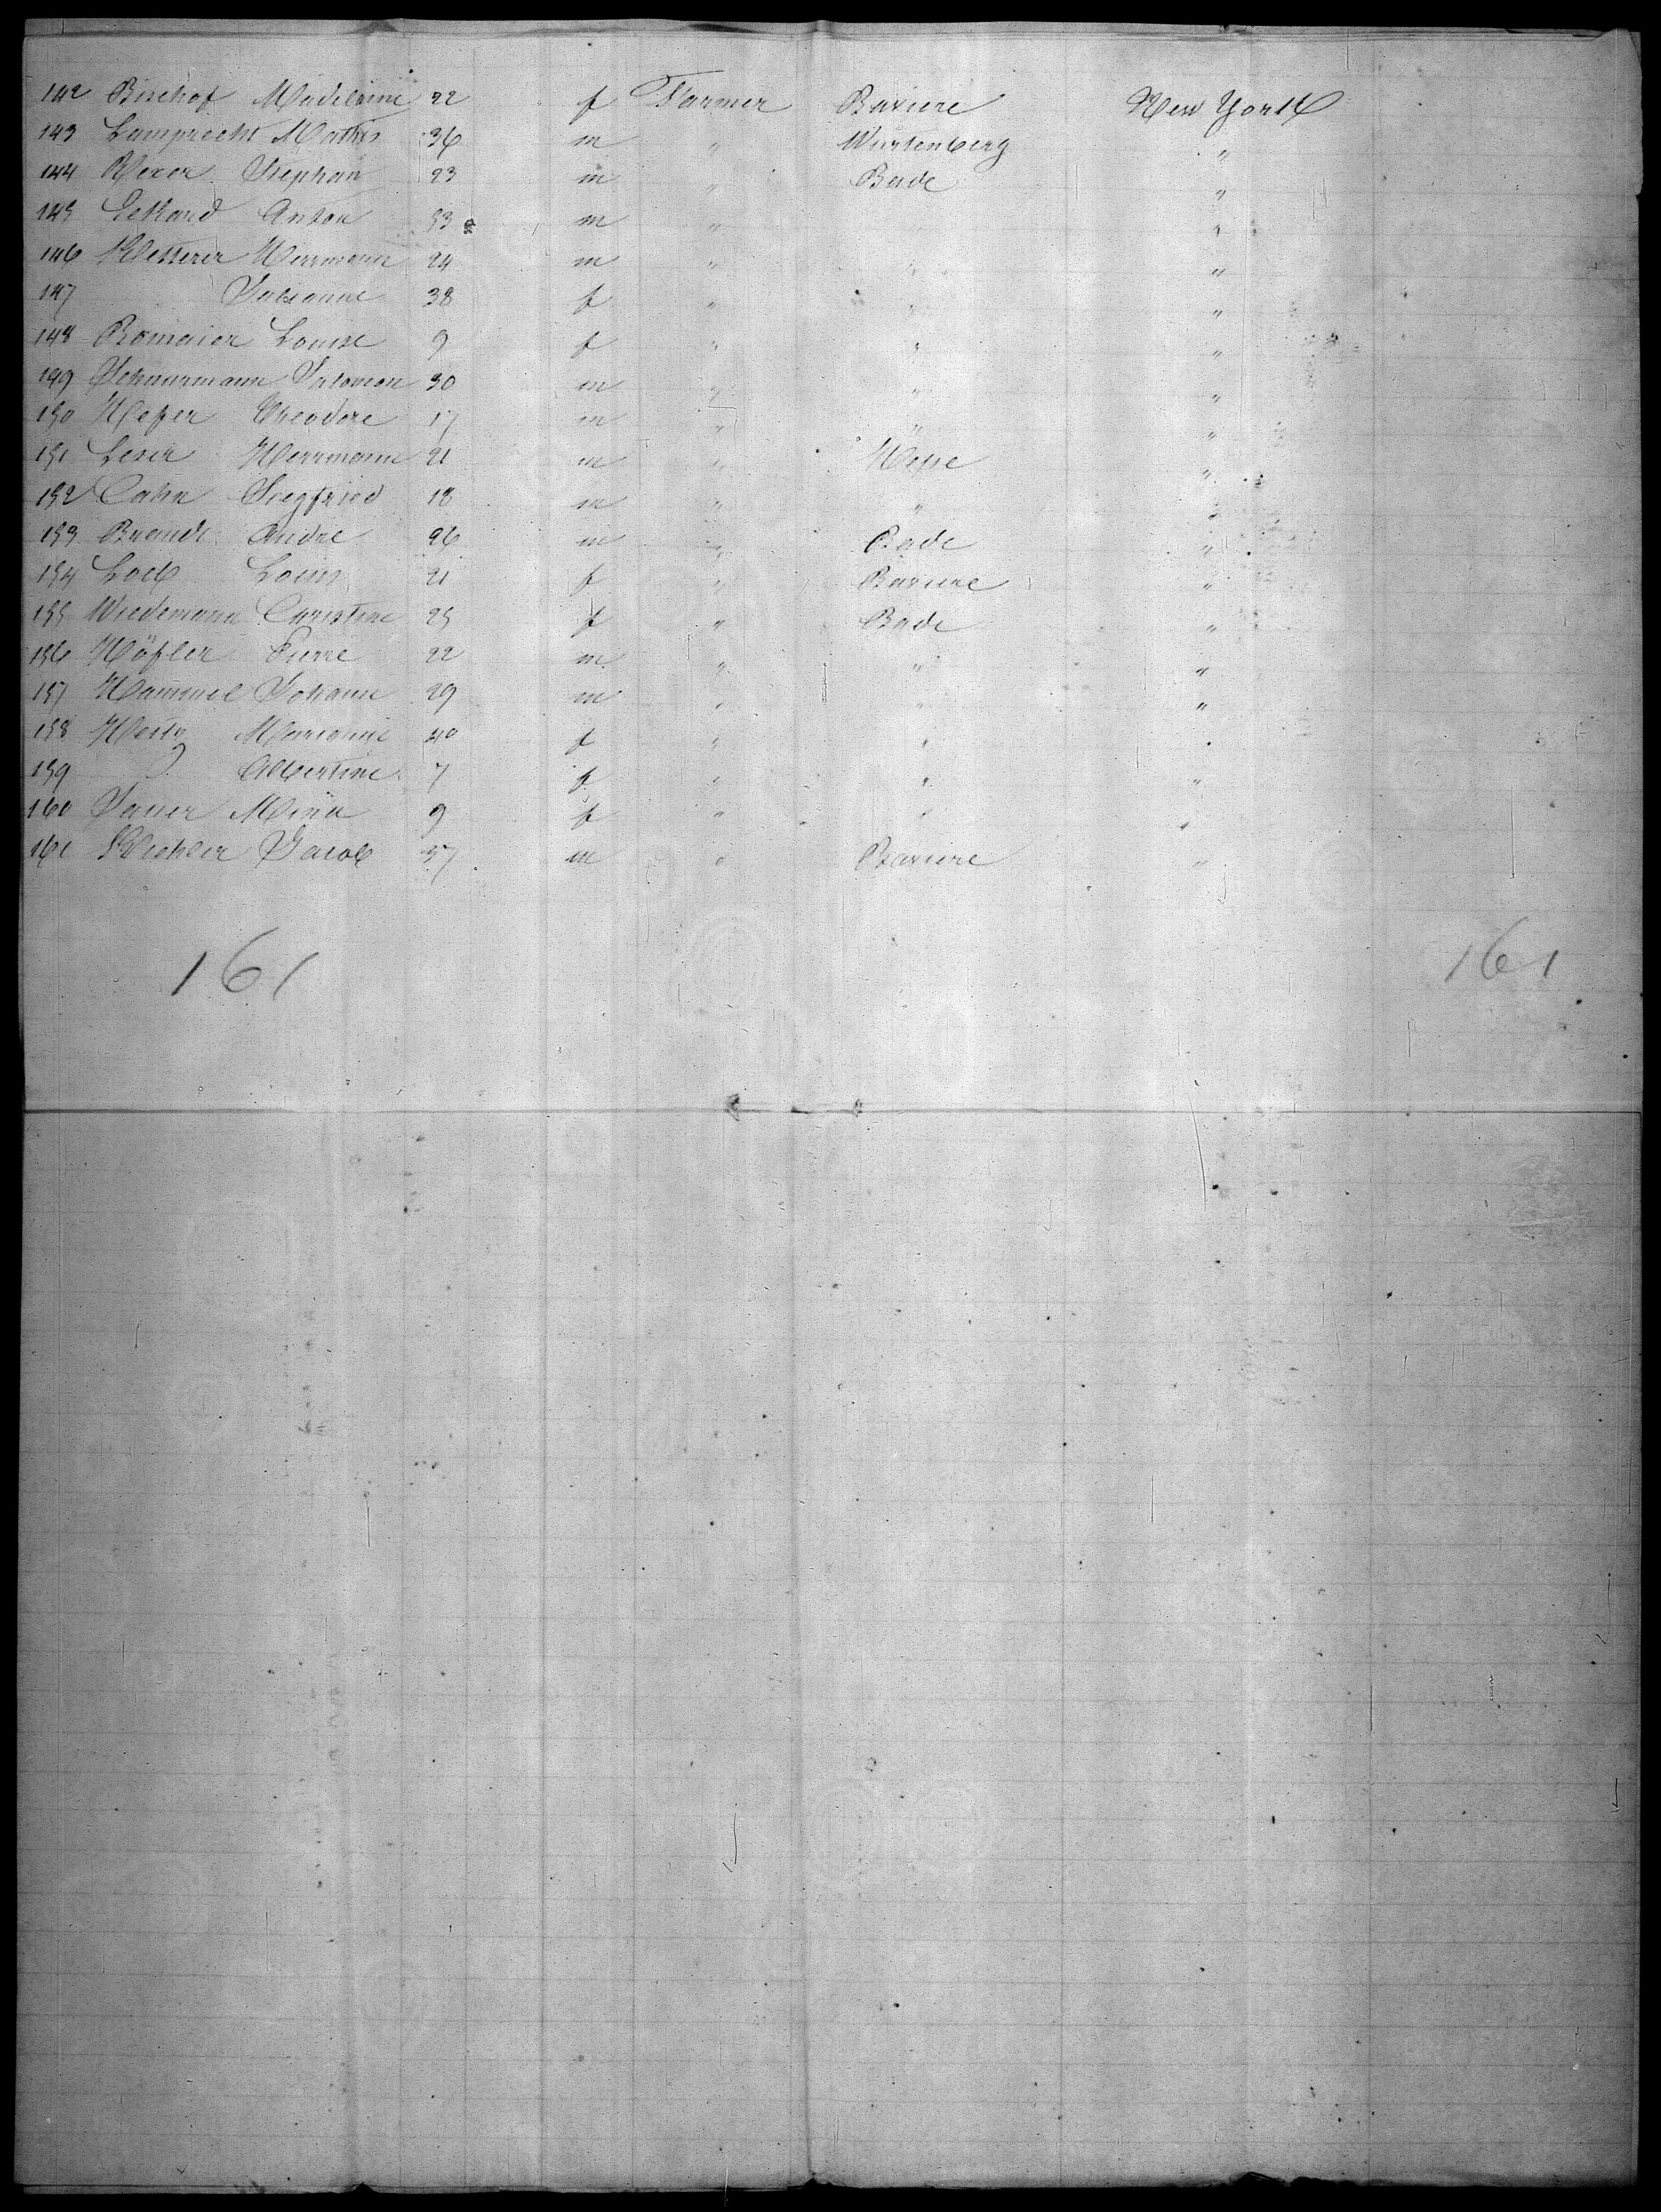 142 Bischof Madelaine 22 f Farmer Baviere New York
143 Lamprecht Mathis 36 m " Würtenberg "
144 Stephan 23 m " Bade "
145 Eckard Anton 33 m " " "
146 Ketterer Herrmann 24 m " " "
147 38 f " " "
148 Bomaier Louise 9 f " " "
149 Schnurmann Salomon 30 m " " "
150 Heßer Theodore 17 m " " "
151 Leser Herrmann 21 m " Heße "
152 Cahn Siegfried 18 m " " "
153 Brandt Andre 26 m " Bade "
154 Loeb Louis 21 f " Baviere "
155 Wiedemann Christine 25 f " Bade "
156 Höfler Pierre 22 m " " "
157 Hammel Johann 29 m " " "
158 Marianne 40 f " " "
159 Albertine 7 f " " "
160 Sauer Mina 9 f " " "
161 Jacob 57 m " Baviere "
161 161